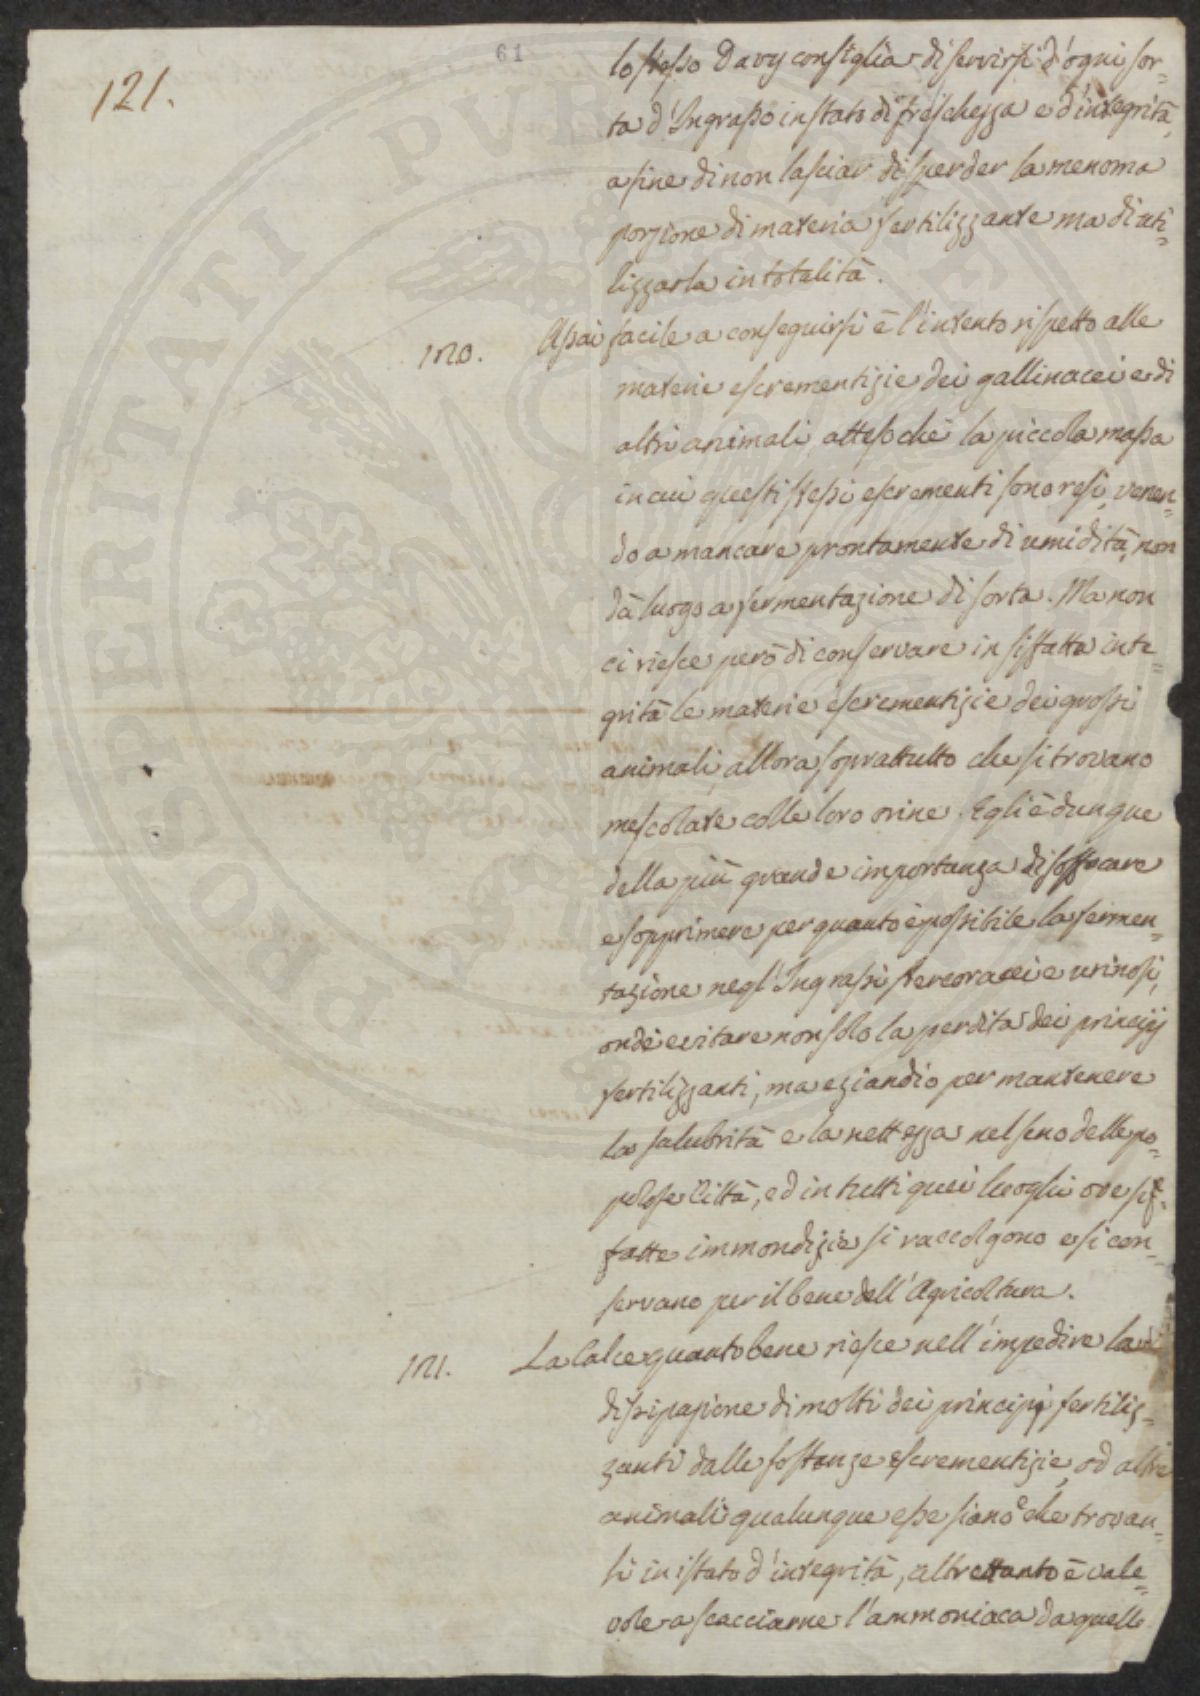 61
121.
lo stesso Davy consiglia di servirsi d'ogni sor=
ta d'Ingrasso in stato di freschezza e d'integrità,
a fine di non lasciar disperder la menoma
porzione di materia fertilizzante ma di uti=
lizzarla in totalità.
120. Assai facile a conseguirsi è l'intento rispetto alle
materie escrementizie dei gallinacei e di
altri animali, attesoche la piccola massa
in cui questi stessi escrementi sono resi, venen=
do a mancare prontamente di umidità, non
dà luogo a fermentazione di sorta. Ma non
ci riesce però di conservare in siffatta inte=
grità le materie escrementizie dei grossi
animali, allora soprattutto che si trovano
mescolate colle loro orine. Egli è dunque
della più grande importanza di soffocare
e sopprimere per quanto è possibile la fermen=
tazione negl'Ingrassi stercoracei e urinosi,
onde evitare non solo la perdita dei principj
fertilizzanti, ma eziandio per mantenere
la salubrità e la nettezza nel seno delle po=
polose Città, ed in tutti quei luoghi ove sif=
fatte immondizie si raccolgono e si con=
servano per il bene dell'Agricoltura.
121. La Calce quanto bene riesce nell'impedire la
dissipazione di molti dei principj fertiliz=
zanti dalle sostanze escrementizie, od altre
animali qualunque esse siano che trovan=
si in istato d'integrità, altrettanto è vale=
vole a scacciarne l'ammoniaca da quelle
PROSPERITATI PUBLICAE